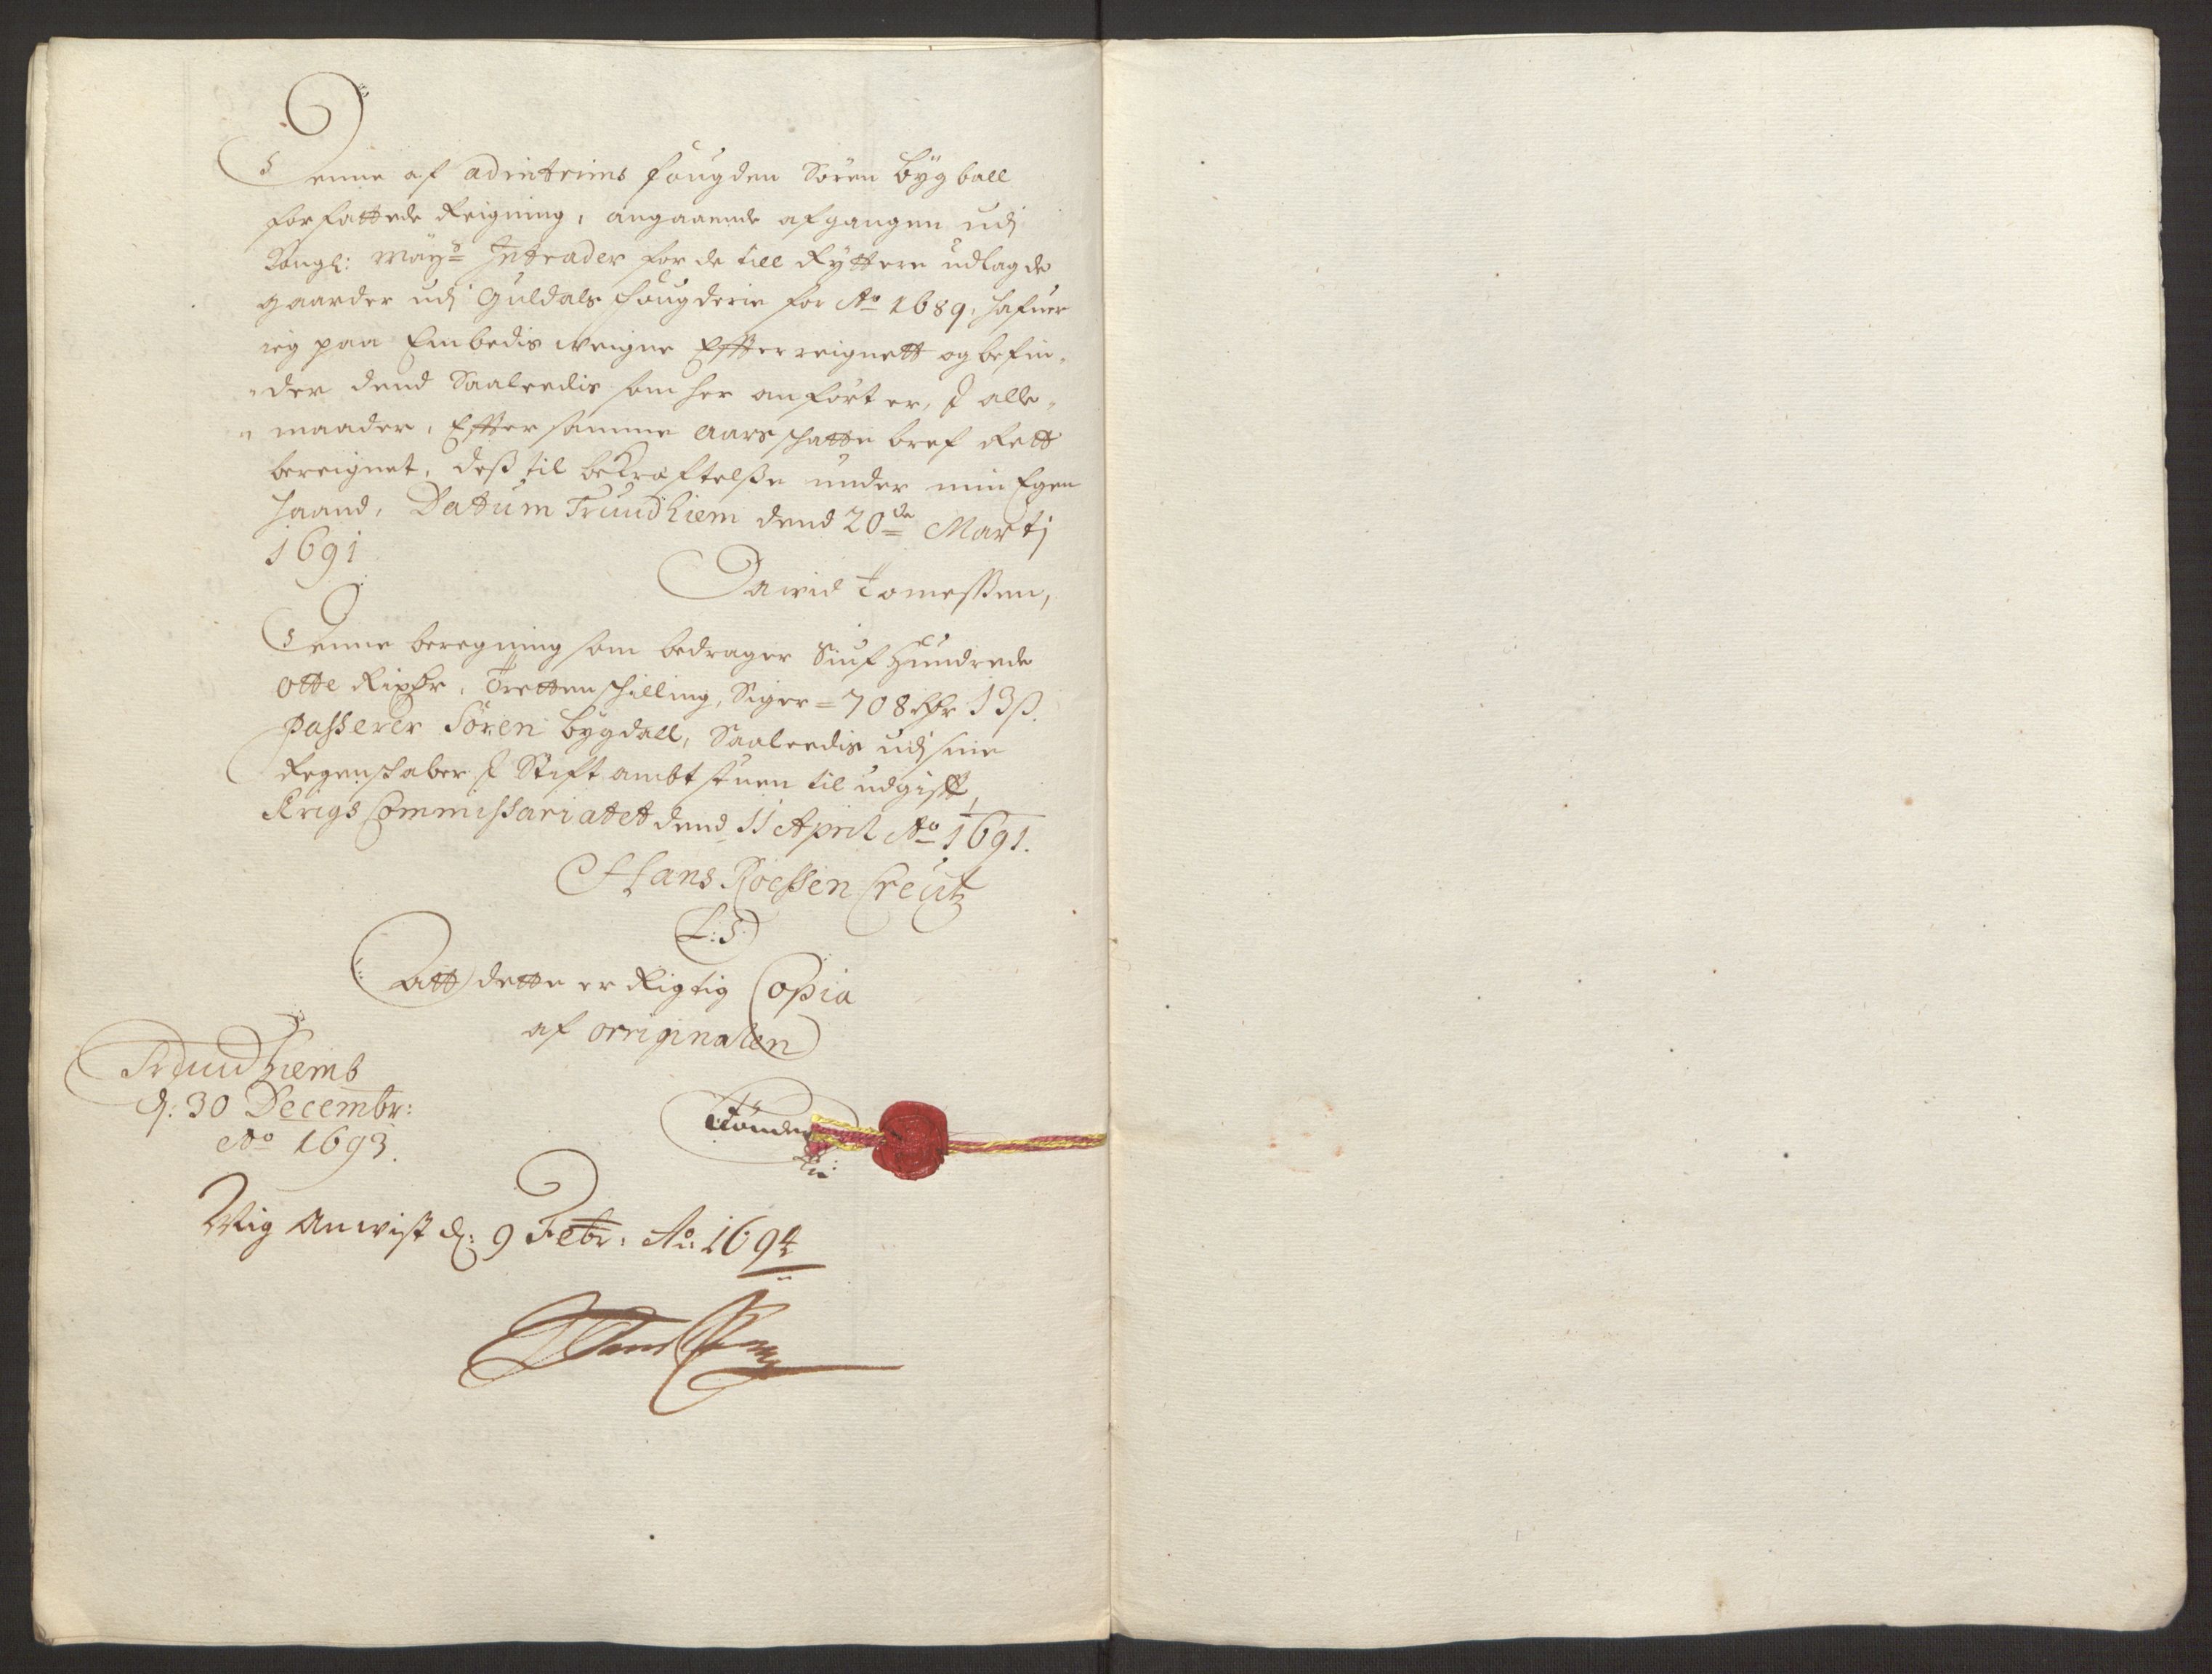 Denne af adintrims fougden Søren Bygball
forfattede Reigning, angaaende afgangen udj
Kongl: Mayts Intrader for de till Ryttere udlagde
gaarder udj Guldals fougderie for Ao 1689, hafuer
ieg paa Embedis weigne Effterreignett og befin-
der dend Saaleedis som her anført er, J alle
maader, Effter samme aars skatte bref Rett
bereignet, deß til bekræftelße under min Egen
haand, Datum Trundhiem dend 20de Martj
1691
David Tomeßen,
Denne beregning som bedrager Siuf Hundrede
otte Rixdr, Tretten skilling, Siger = 708 Rdr 13ß.
Passerer Søren Bygdall, Saaleedis udj sine
Regenskaber J Stiftambtstuen til udgifft,
Krigs Commissariatet dend 11 April Ao 1691.
Hans Roessen Creutz
L:S
Att dette er Rigtig Copia
af originalen
Trundhiemb
d: 30 Decembr:
Ao 1693.
Tønder
Wiig Anwist d: 9 Febr: Ao: 1694